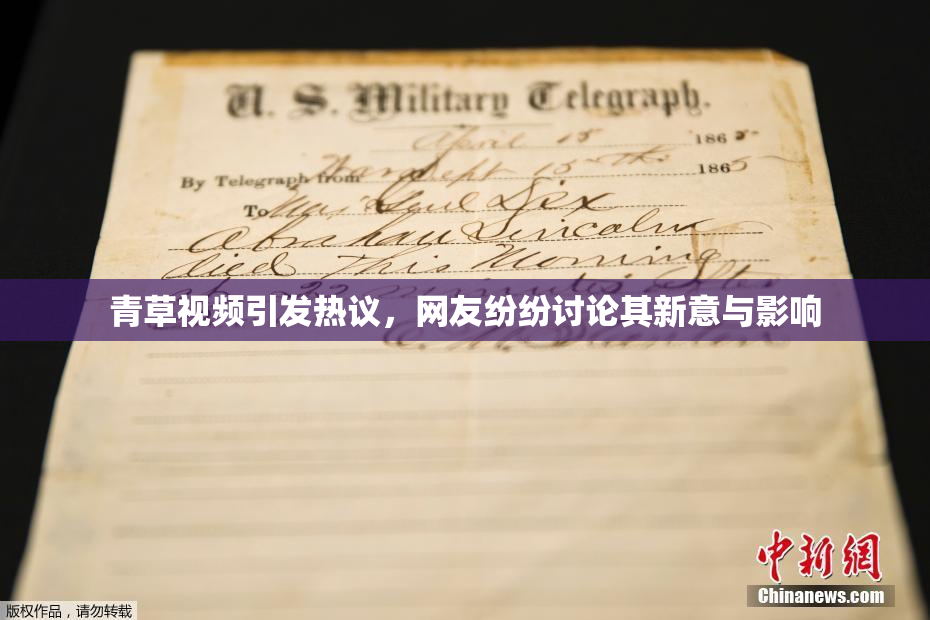 U. S. Military Telegraph.
April 15 1865
By Telegraph from War Dept 15th 1865
To Maj Genl Dix
Abraham Lincoln
died This Morning
青草视频引发热议，网友纷纷讨论其新意与影响
中新網
Chinanews.com
版权作品，请勿转载